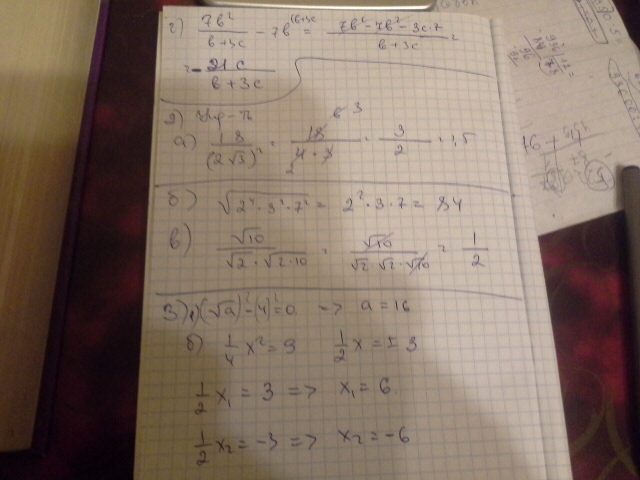 г) 7в²/(в+3с) - 7в^(в+3с = (7в² - 7в² - 3с·7)/(в+3с) =
= -21с/(в+3с)
2)
а) 18/(2√3)² = 18/(4·3) = 3/2 = 1,5
б) √(2⁴·3²·7²) = 2²·3·7 = 84
в) √10/(√2·√2·10) = √10/(√2·√2·√10) = 1/2
3) а) (√a)² - (4)² = 0 => a = 16
б) 1/4 x² = 9 1/2 x = ±3
1/2 x₁ = 3 => x₁ = 6
1/2 x₂ = -3 => x₂ = -6